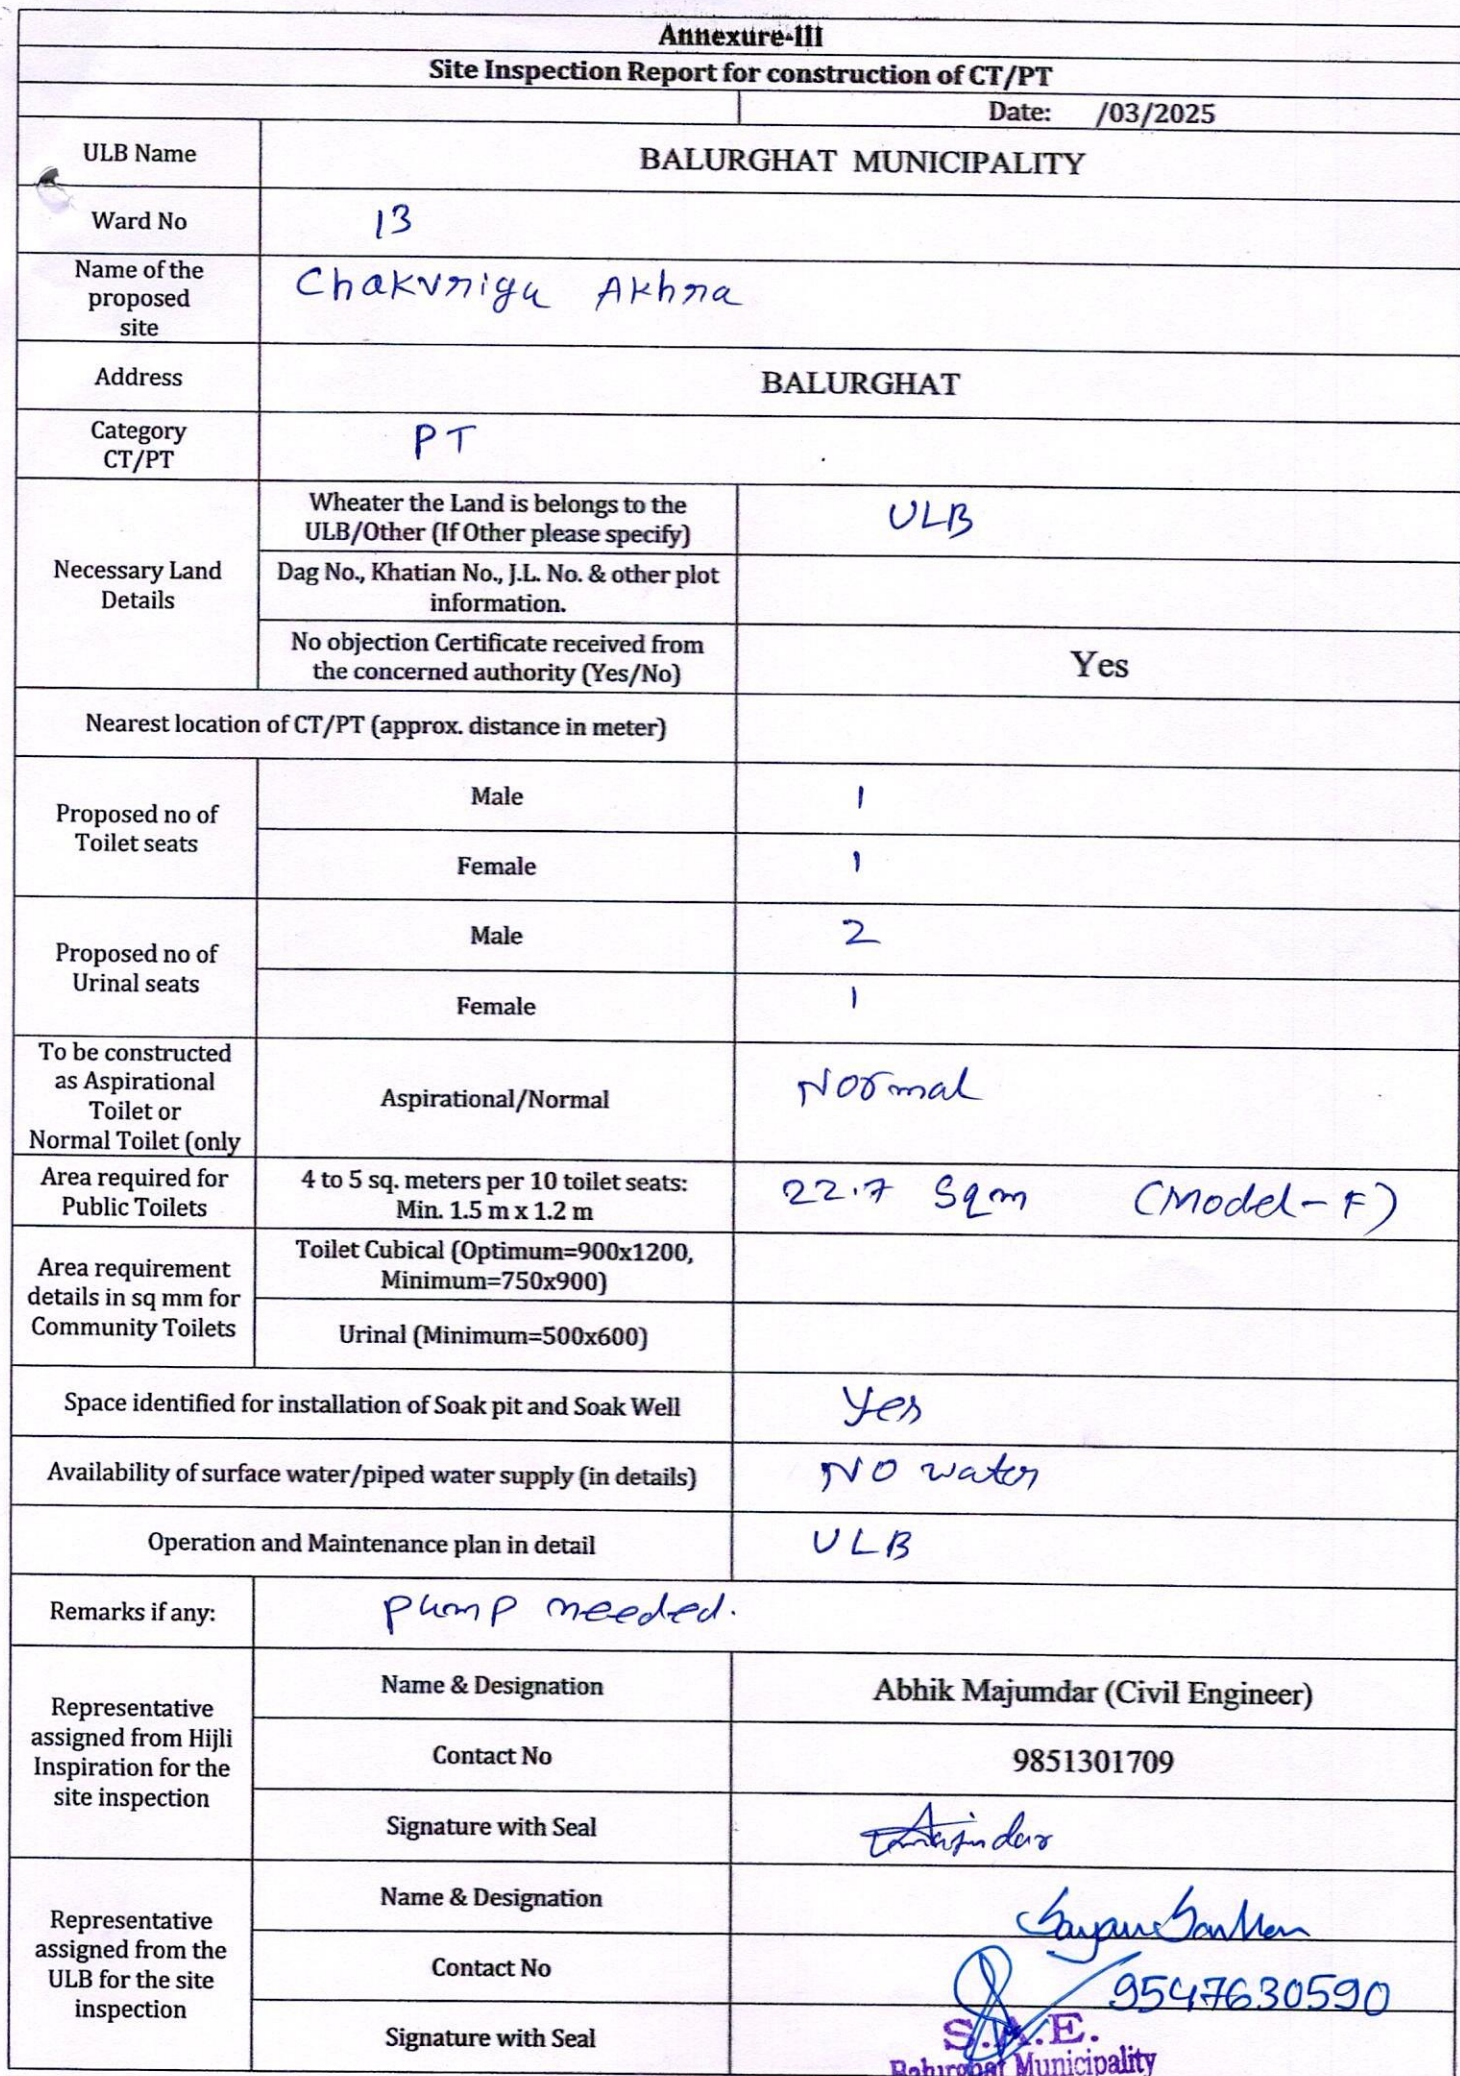 Annexure-III
Site Inspection Report for construction of CT/PT
Date: /03/2025
ULB Name
BALURGHAT MUNICIPALITY
Ward No
13
Name of the
proposed
site
Chakvriga Akhra
Address
BALURGHAT
Category
CT/PT
PT
Necessary Land
Details
Wheater the Land is belongs to the
ULB/Other (If Other please specify)
ULB
Dag No., Khatian No., J.L. No. & other plot
information.
No objection Certificate received from
the concerned authority (Yes/No)
Yes
Nearest location of CT/PT (approx. distance in meter)
Proposed no of
Toilet seats
Male
1
Female
1
Proposed no of
Urinal seats
Male
2
Female
1
To be constructed
as Aspirational
Toilet or
Normal Toilet (only
Aspirational/Normal
Normal
Area required for
Public Toilets
4 to 5 sq. meters per 10 toilet seats:
Min. 1.5 m x 1.2 m
22.7 Sqm (Model-F)
Area requirement
details in sq mm for
Community Toilets
Toilet Cubical (Optimum=900x1200,
Minimum=750x900)
Urinal (Minimum=500x600)
Space identified for installation of Soak pit and Soak Well
Yes
Availability of surface water/piped water supply (in details)
NO water
Operation and Maintenance plan in detail
ULB
Remarks if any:
pump needed.
Representative
assigned from Hijli
Inspiration for the
site inspection
Name & Designation
Abhik Majumdar (Civil Engineer)
Contact No
9851301709
Signature with Seal
Representative
assigned from the
ULB for the site
inspection
Name & Designation
Sayan Sarkar
Contact No
9547630590
Signature with Seal
S.A.E.
Balurghat Municipality